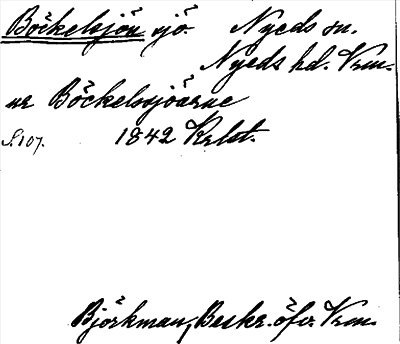 Böckelsjön sjö. Nyeds sn.
Nyeds hd. Vrm.
ur Böckelssjöarne
S.107. 1842 Krlst.
Björkman, Beskr. öfv. Vrm.